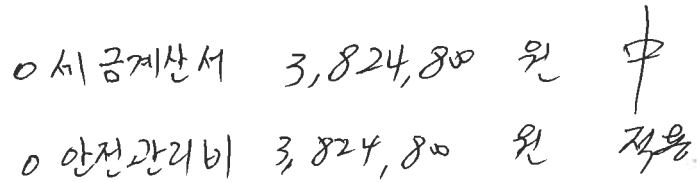 ○ 세금계산서 3,824,800 원 中
○ 안전관리비 3,824,800 원 적용.